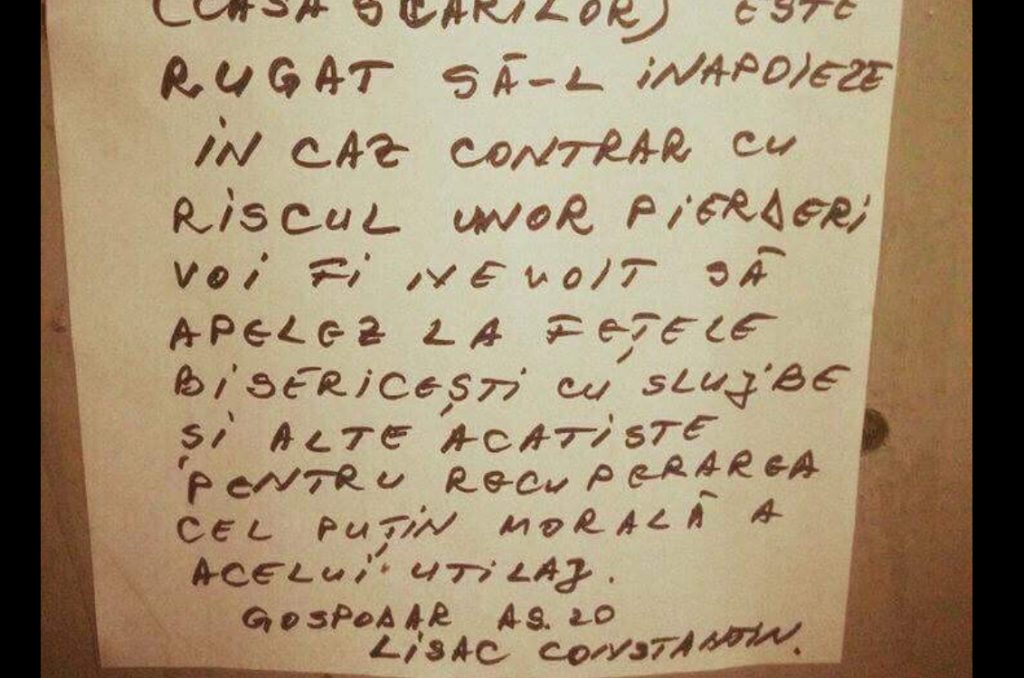 (CASA SCĂRILOR) ESTE
RUGAT SĂ-L INAPOIEZE
IN CAZ CONTRAR CU
RISCUL UNOR PIERDERI
VOI FI NEVOIT SĂ
APELEZ LA FEȚELE
BISERICEȘTI CU SLUJBE
ȘI ALTE ACATISTE
PENTRU RECUPERAREA
CEL PUȚIN MORALĂ A
ACELUI UTILAJ.
GOSPODAR AS. 20
LISAC CONSTANTIN.